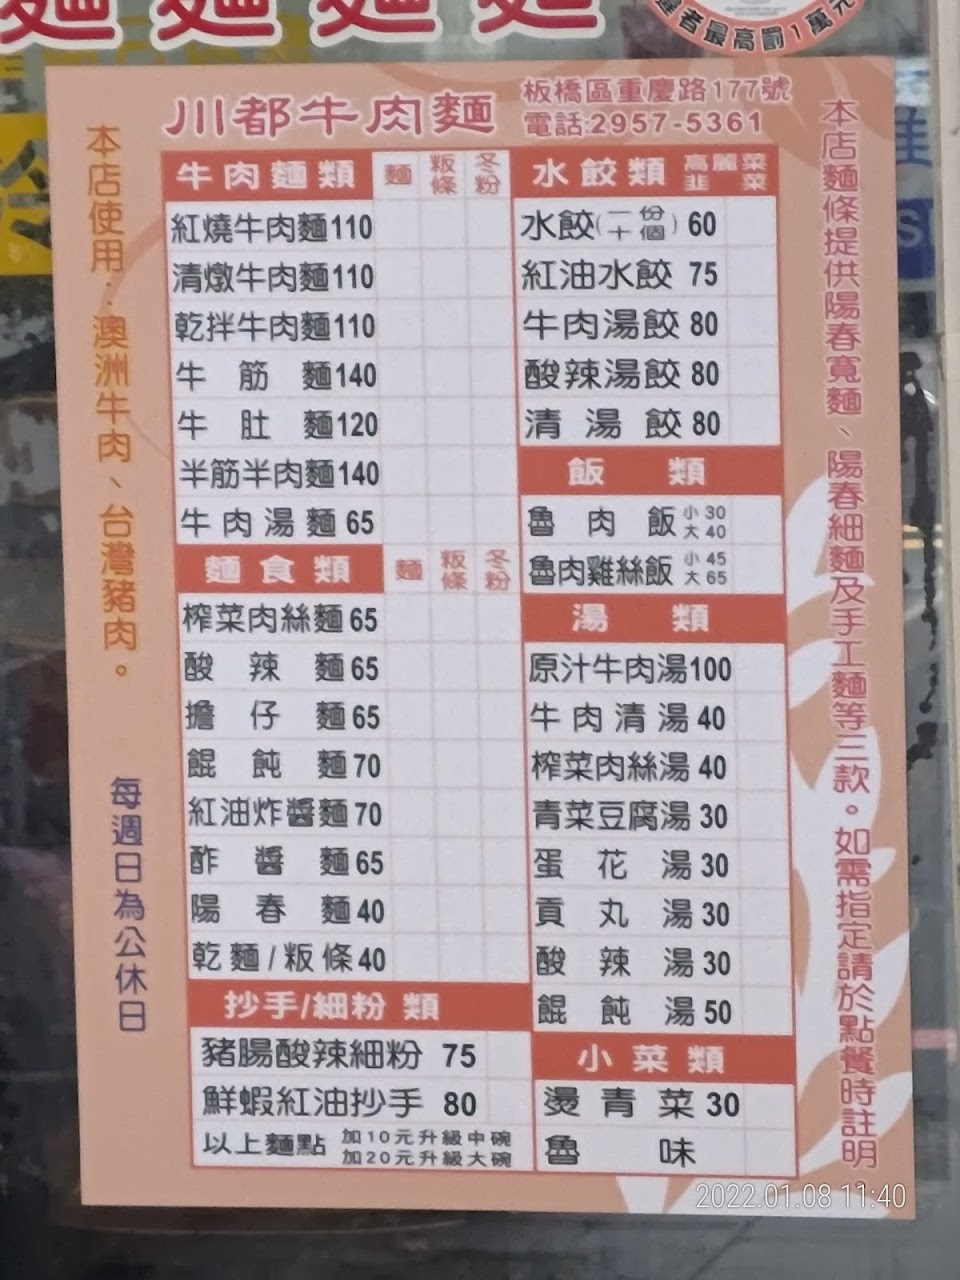 麵麵麵麵
者最高罰1萬元
川都牛肉麵
板橋區重慶路177號
電話:2957-5361
本店使用：澳洲牛肉、台灣豬肉。
每週日為公休日
牛肉麵類 麵 粄條 冬粉
紅燒牛肉麵110
清燉牛肉麵110
乾拌牛肉麵110
牛筋麵140
牛肚麵120
半筋半肉麵140
牛肉湯麵65
麵食類 麵 粄條 冬粉
榨菜肉絲麵65
酸辣麵65
擔仔麵65
餛飩麵70
紅油炸醬麵70
酢醬麵65
陽春麵40
乾麵/粄條40
抄手/細粉類
豬腸酸辣細粉 75
鮮蝦紅油抄手 80
以上麵點 加10元升級中碗
加20元升級大碗
水餃類 高麗菜 韭菜
水餃(一份十個) 60
紅油水餃 75
牛肉湯餃 80
酸辣湯餃 80
清湯餃 80
飯類
魯肉飯 小30 大40
魯肉雞絲飯 小45 大65
湯類
原汁牛肉湯100
牛肉清湯40
榨菜肉絲湯40
青菜豆腐湯30
蛋花湯30
貢丸湯30
酸辣湯30
餛飩湯50
小菜類
燙青菜30
魯味
本店麵條提供陽春寬麵、陽春細麵及手工麵等三款。如需指定請於點餐時註明。
2022.01.08 11:40